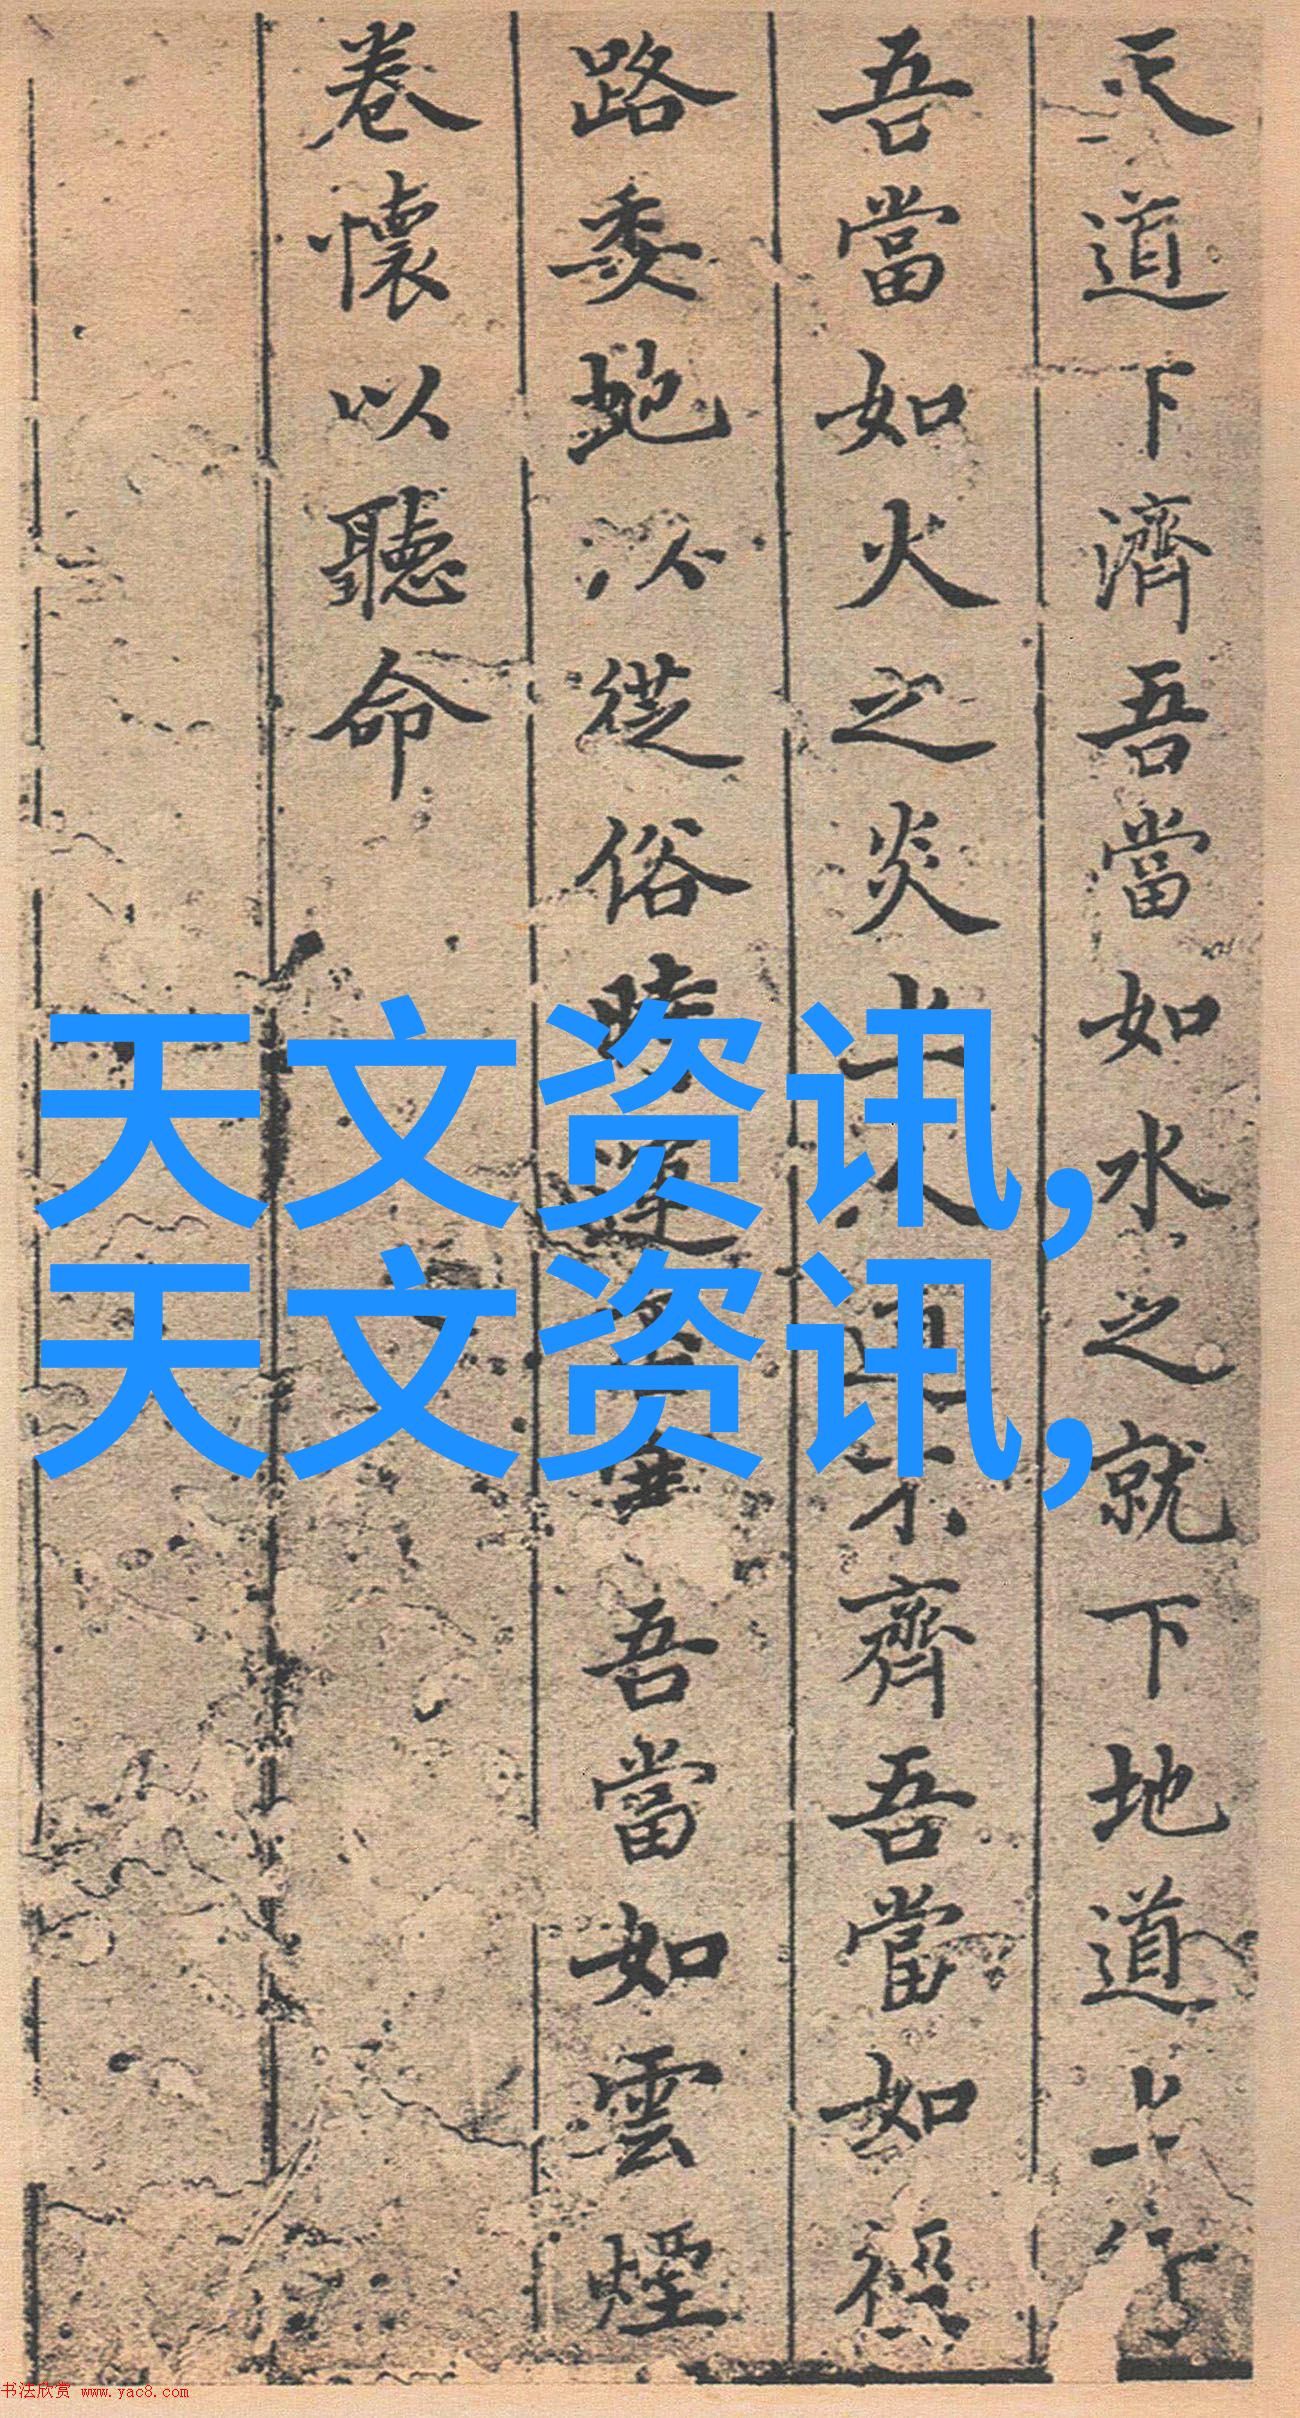 天道下濟吾當如水之就下地道上行
吾當如火之炎上人道不齊吾當如
路委蛇以從俗時運吾當如雲煙
卷懷以聽命
天文资讯,
天文资讯,
书法欣赏 www.yac8.com